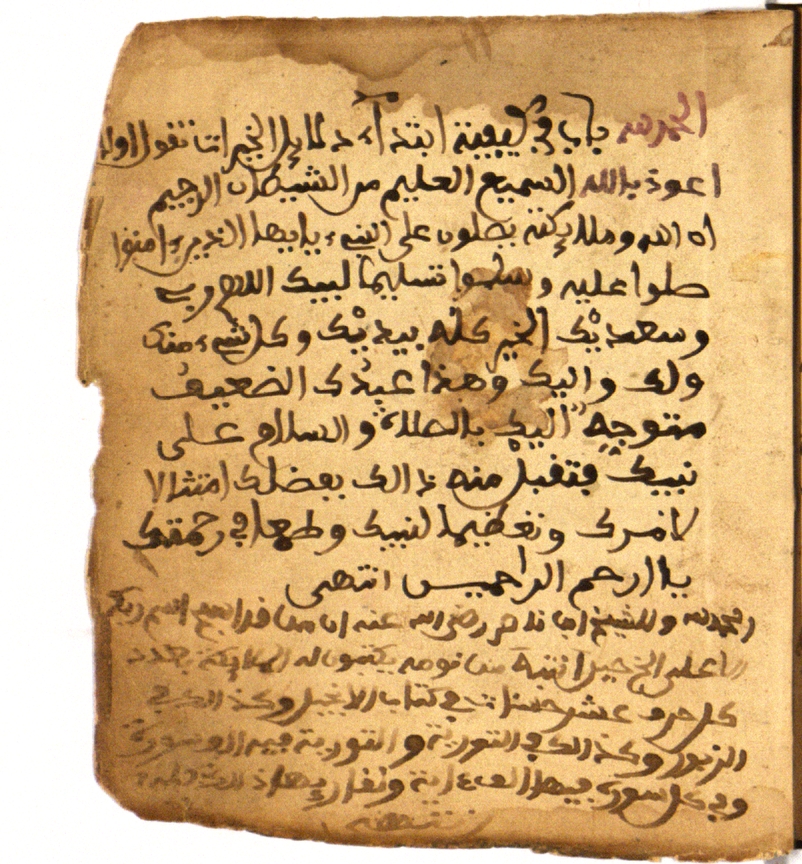 الحمد لله باب في كيفية ابتداء دلائل الخيرات تقول اولا
اعوذ بالله السميع العليم من الشيطان الرجيم
ان الله وملائكته يصلون على النبيء يايها الذين ءامنوا
صلوا عليه وسلموا تسليما لبيك اللهم ربي
وسعديك الخير كله بيديك وكل شيء منك
ولك واليك وهذا عبدك الضعيف
متوجه اليك بالصلاة والسلام على
نبيك فتقبل منه ذالك بفضلك امتثالا
لامرك وتعظيما لنبيك وطمعا في رحمتك
ياارحم الراحمين انتهى
الحمد لله وللشيخ رضي الله عنه ان من قرا سبح اسم ربك
الاعلى من نومه يكتبون له الملايكة بعدد
كل حرف عشر حسنات في كتاب الانجيل وكذالك في
الزبور وكذالك في التورية والتورية فيه الف سورة
وفي كل سورة فيها الف ءاية